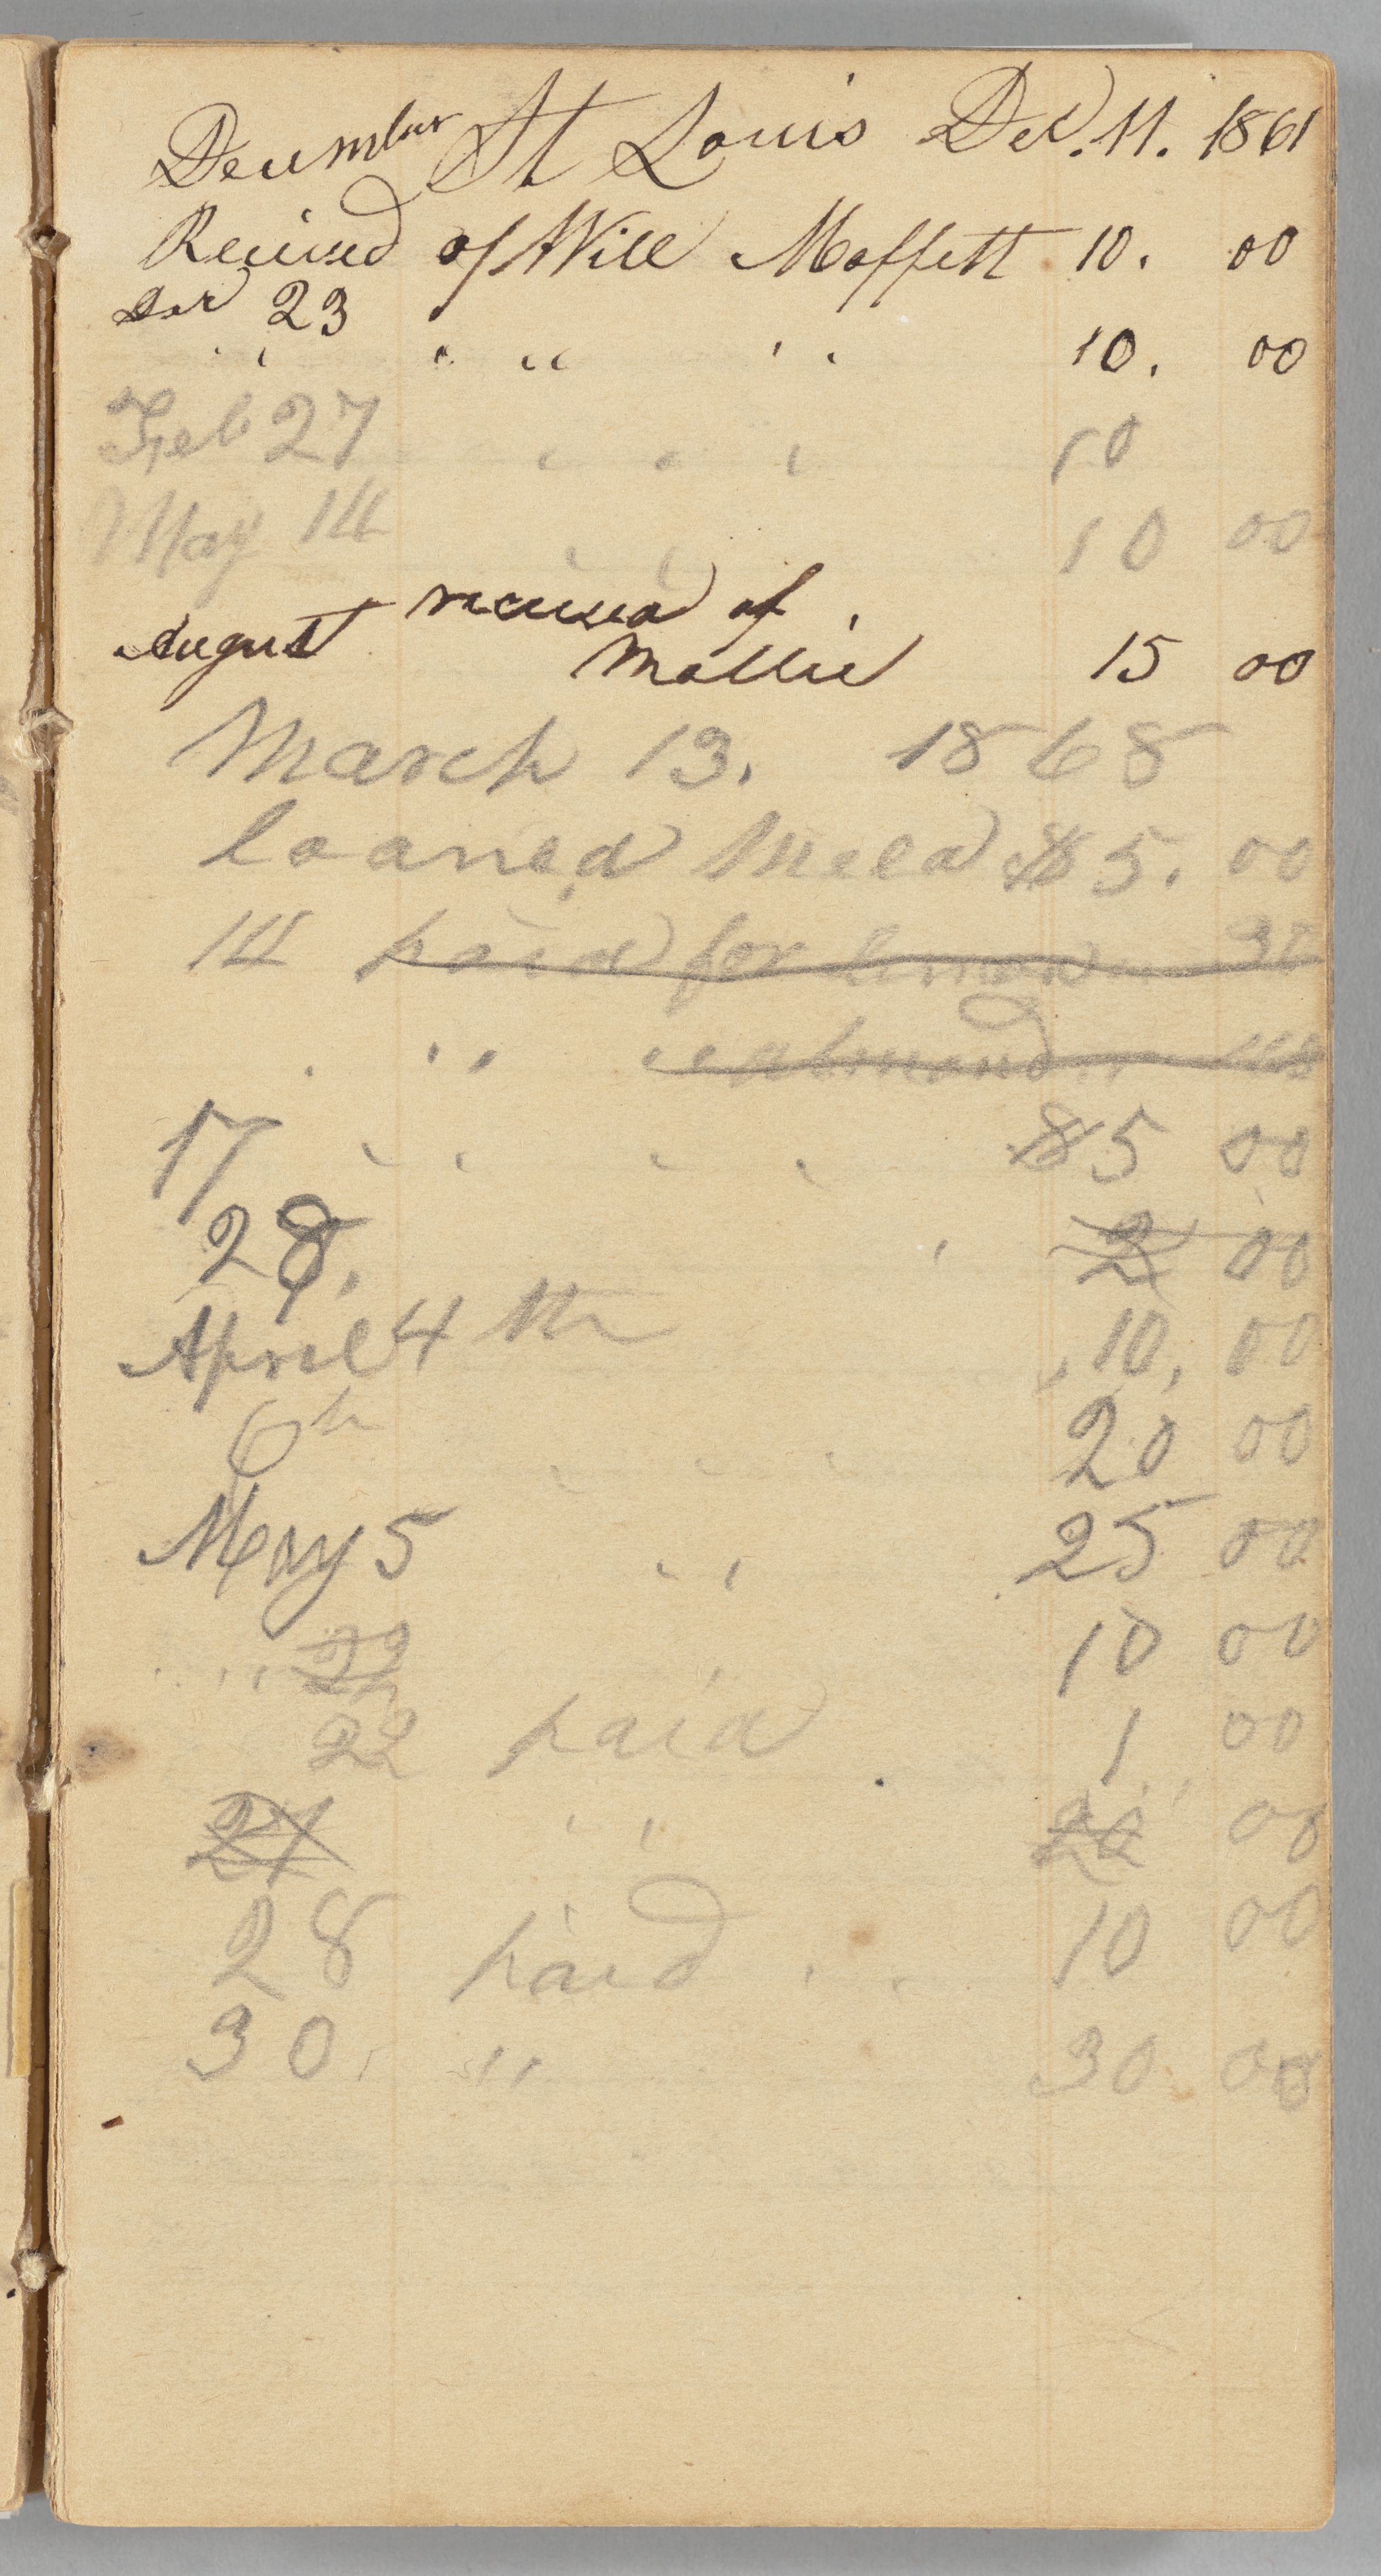 December St Louis Dec. 11. 1861
Received of Will Moffett 10. 00
23
" " " " 10. 00
Feb 27 " " " 10
May 14 " " 10 00
received of
August Mollie 15 00
March 13. 1868
loaned Mela $5. 00
14 paid for
" " " almond
17 " " " " $5 00
28. " 2 00
April 4 th 10. 00
6th " " " 20 00
May 5 " " 25 00
" " 22 " 10 00
22 paid 1 00
27 " " 20 00
28 paid " " 10 00
30. " 30 00